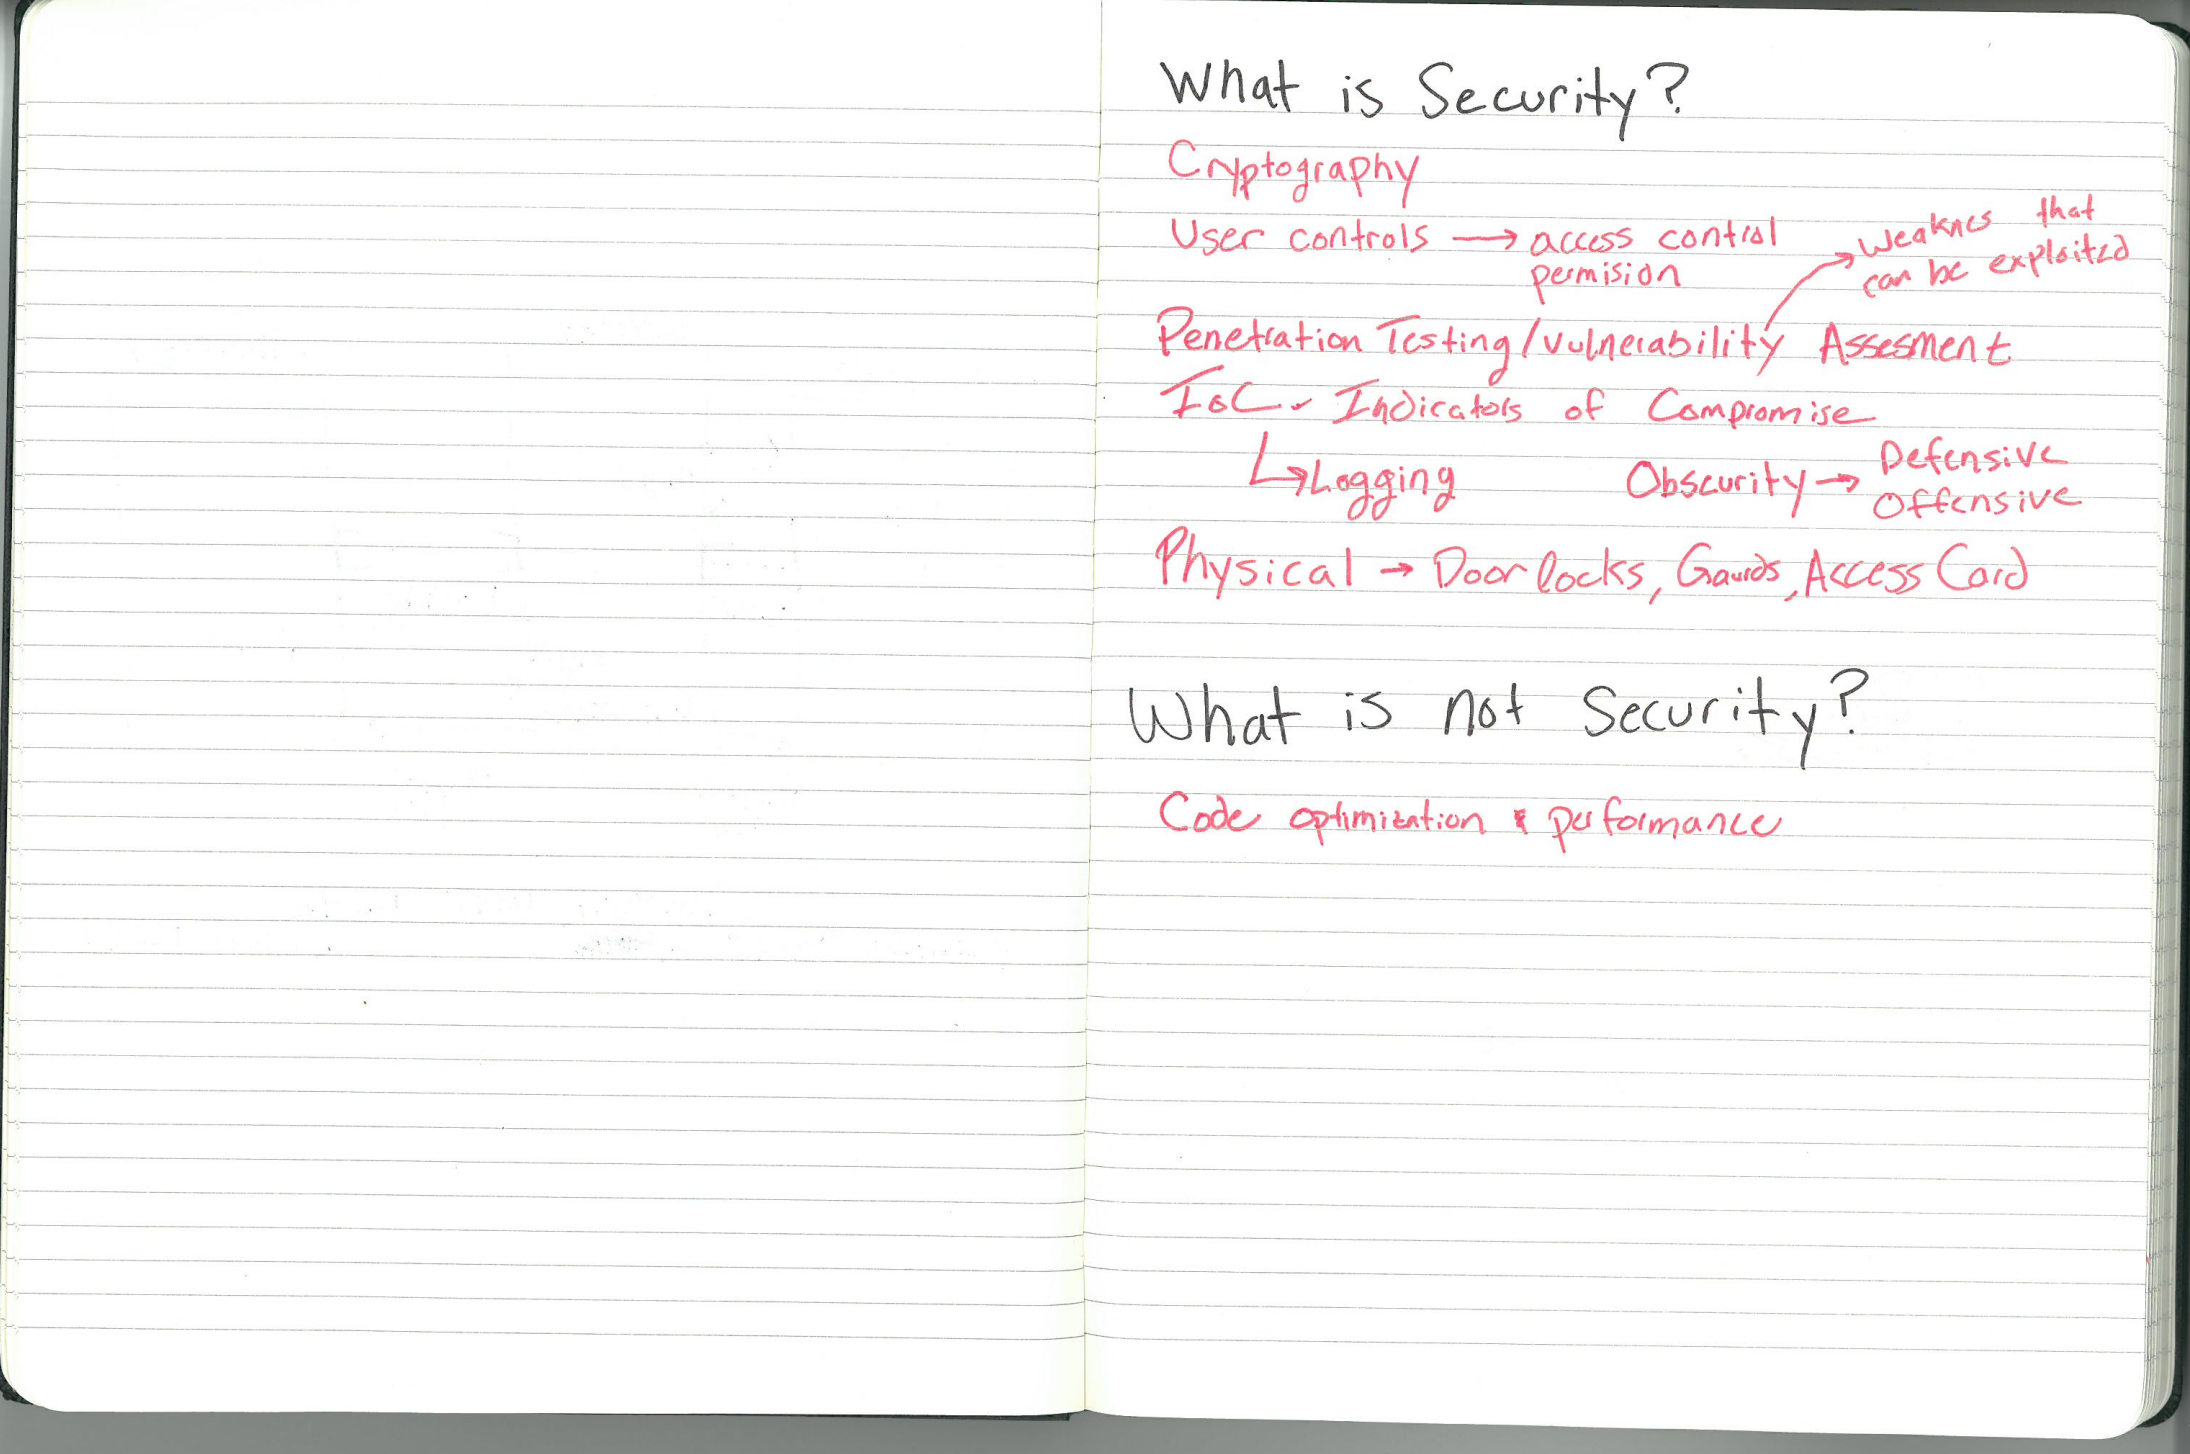 What is Security?
Cryptography
User controls → access control
permision
weaknes that
can be exploited
Penetration Testing/vulnerability Assesment
IoC - Indicators of Compromise
↳Logging
Obscurity → Defensive
Offensive
Physical → Door locks, Gaurds, Access Card
What is not Security?
Code optimization & performance